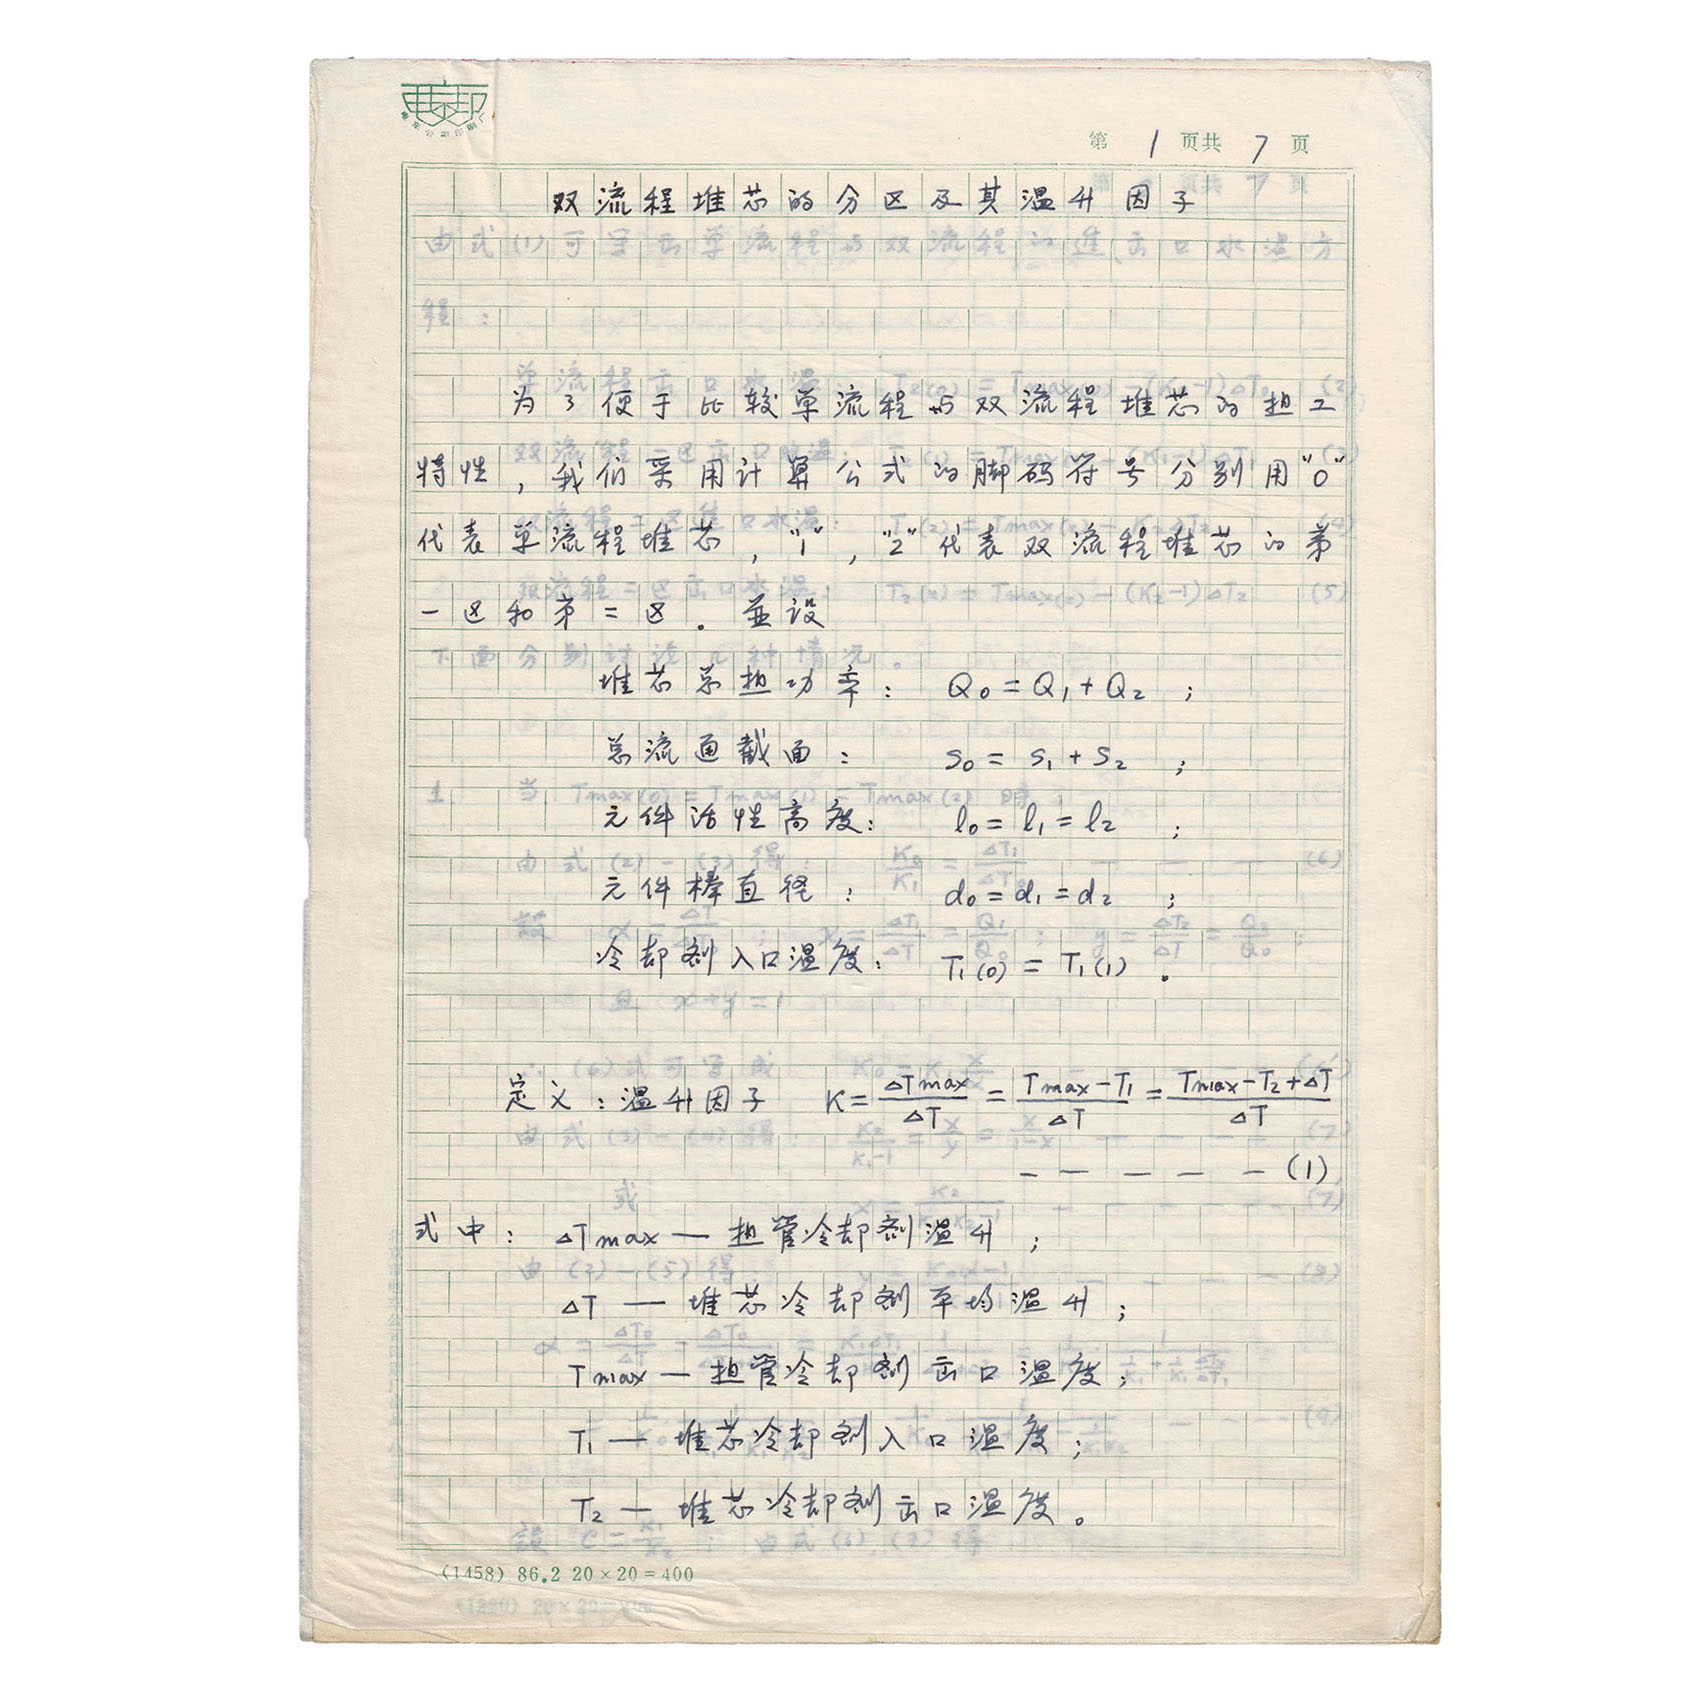 第 1 页共 7 页
双流程堆芯的分区及其温升因子
为了便于比较单流程与双流程堆芯的热工
特性，我们采用计算公式的脚码符号分别用"0"
代表单流程堆芯，"1"，"2"代表双流程堆芯的第
一区和第二区。并设
堆芯总热功率： Q₀=Q₁+Q₂ ；
总流通截面： S₀=S₁+S₂ ；
元件活性高度： l₀=l₁=l₂ ；
元件棒直径： d₀=d₁=d₂ ；
冷却剂入口温度： T₁(0)=T₁(1) 。
定义：温升因子 K=ΔTmax/ΔT=(Tmax-T₁)/ΔT=(Tmax-T₂+ΔT)/ΔT
— — — — — (1)
式中： ΔTmax — 热管冷却剂温升；
ΔT — 堆芯冷却剂平均温升；
Tmax — 热管冷却剂出口温度；
T₁ — 堆芯冷却剂入口温度；
T₂ — 堆芯冷却剂出口温度。
(1458) 86.2 20×20=400